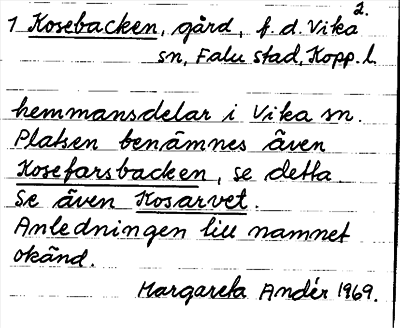 2.
1 Kosebacken, gård, f.d. Vika
sn, Falu stad, Kopp. l.
hemmansdelar i Vika sn.
Platsen benämnes även
Kosefarsbacken, se detta.
Se även Kosarvet.
Anledningen till namnet
okänd.
Margareta Andér 1969.